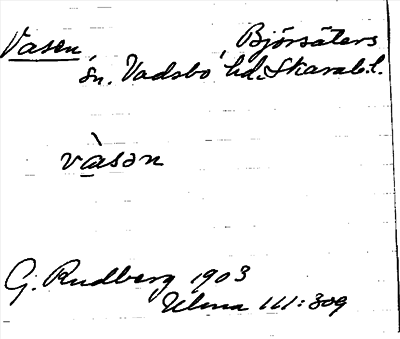 Vasen, Björsäters
sn. Vadsbo hd. Skarab. l.
và̱sən
G. Rudberg 1903
Ulma 111:309